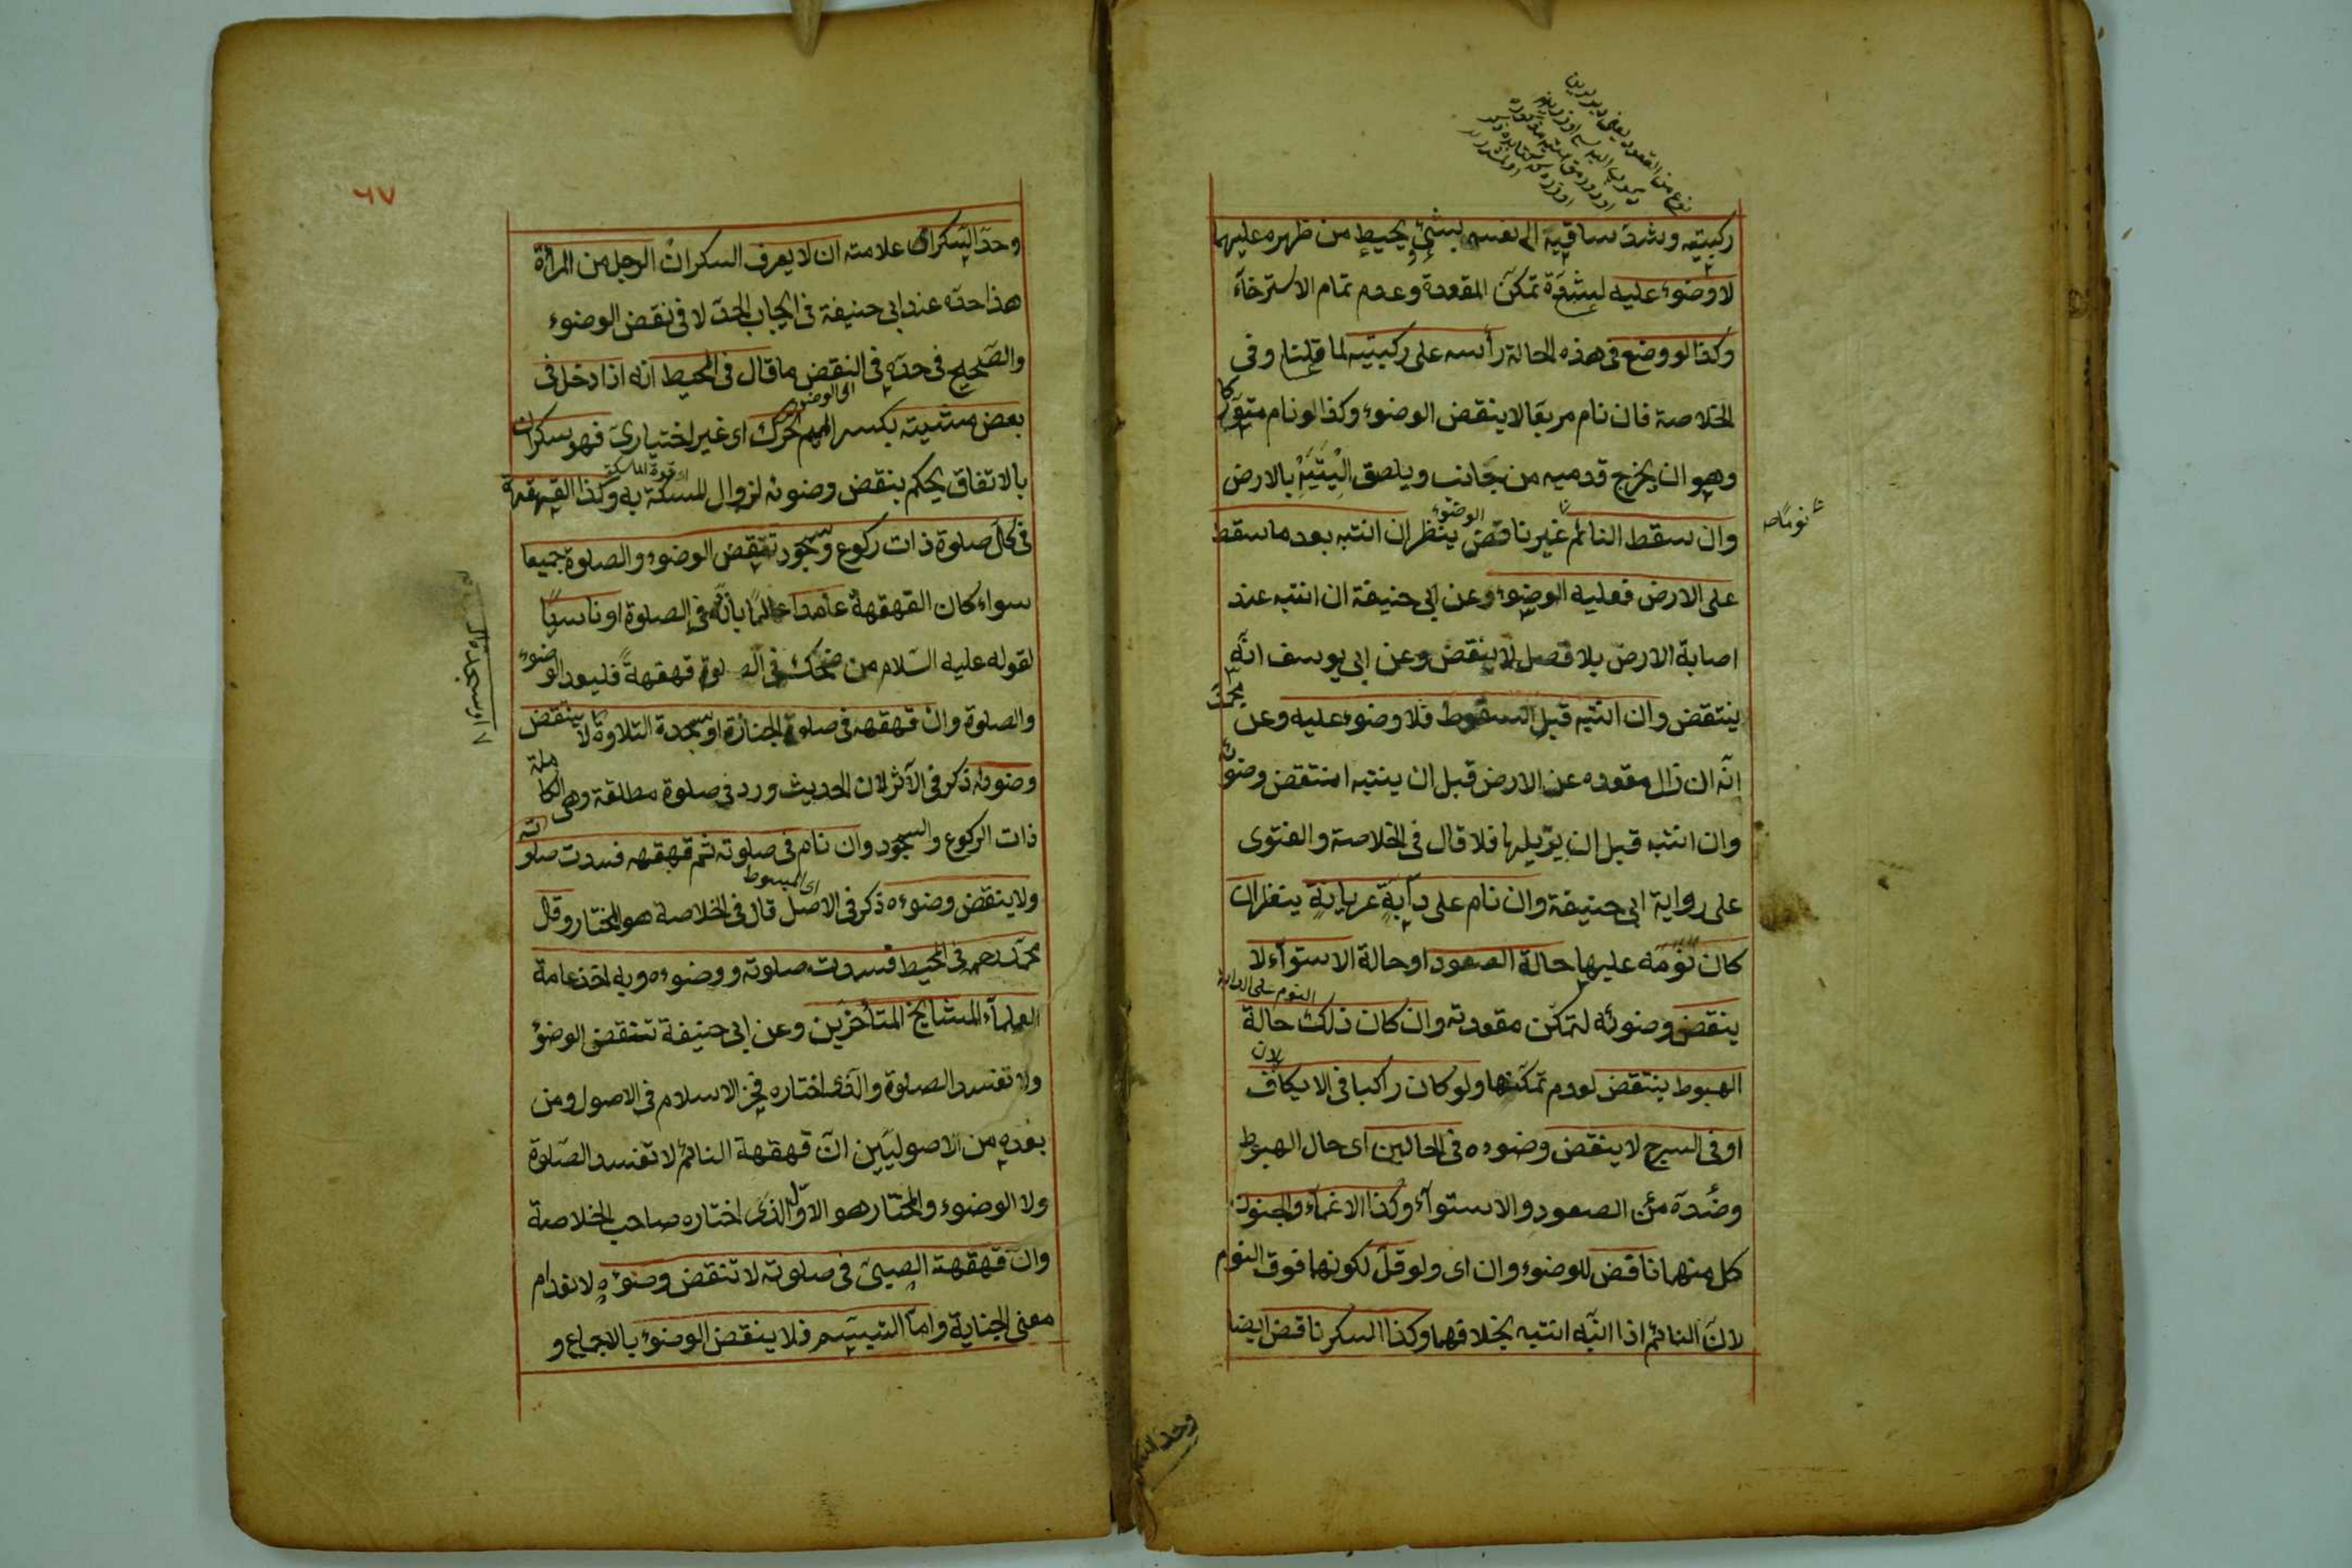 نوع من القعود يعني
ركبتيه وشد ساقيه الى نفسه بشئ يحيط من ظهره عليهما
لا وضوء عليه لشدة تمكن المقعدة وعدم تمام الاسترخآء
وكذا لو وضع فى هذه الحالة رأسه على ركبتيه لما قلنا وفى
الخلاصة فان نام مربعا لا ينقض الوضوء وكذا لو نام متوركا
وهو ان يخرج قدميه من جانب ويلصق اليتيه بالارض
وان سقط النائم غير ناقض ينظر ان انتبه بعد ما سقط
الوضوء
نومًا
على الارض فعليه الوضوء وعن ابى حنيفة ان انتبه عند
اصابة الارض بلا فصل لا ينقض وعن ابى يوسف انه
ينتقض وان انتبه قبل السقوط فلا وضوء عليه وعن محمد
انه ان زال مقعده عن الارض قبل ان ينتبه انتقض وضوئه
وان انتبه قبل ان يزيلها فلا قال فى الخلاصة والفتوى
على رواية ابى حنيفة وان نام على دآبة عريانة ينظر ان
كان نومه عليها حالة الصعود او حالة الاستوآء لا
النوم على الدابة
ينقض وضوئه لتمكن مقعدته وان كان ذلك حالة
الهبوط ينتقض لعدم تمكنها ولو كان راكبا فى الايكاف
لان
او فى السرج لا ينقض وضوءه فى الحالين اى حال الهبوط
وضده من الصعود والاستوآء وكذا الاغمآء والجنون
كل منهما ناقض للوضوء وان اى ولو قل لكونهما فوق النوم
لان النائم اذا انبه انتبه بخلافهما وكذا السكر ناقض ايضا
وحد السكر
٦٧
وحد السكران علامته ان لا يعرف السكران الرجل من المرأة
هذا حده عند ابى حنيفة فى ايجاب الحد لا فى نقض الوضوء
والصحيح فى حده فى النقض ما قال فى المحيط انه اذا دخل فى
اى الوضوء
بعض مشيته بكسر الميم تحرك اى غير اختيارى فهو سكران
بالاتفاق يحكم بنقض وضوئه لزوال المسكة به وكذا القهقهة
اى قوة الماسكة
فى كل صلوة ذات ركوع وسجود تنقض الوضوء والصلوة جميعا
سواء كان القهقهة عامدا عالما بانه فى الصلوة او ناسيا
لقوله عليه السلام من ضحك فى الصلوة قهقهة فليعد الوضوء
والصلوة وان قهقهه فى صلوة الجنازة او سجدة التلاوة لا ينتقض
او سجدة
وضوئه ذكر فى الآثر لان الحديث ورد فى صلوة مطلقة وهى الكاملة
ذات الركوع والسجود وان نام فى صلوته ثم قهقهه فسدت صلوته
ولا ينقض وضوءه ذكر فى الاصل قال فى الخلاصة هو المختار وقال
اى المبسوط
محمد رحمه فى المحيط فسدت صلوته ووضوءه وبه اخذ عامة
العلمآء المشايخ المتأخرين وعن ابى حنيفة تنتقض الوضوء
ولا تفسد الصلوة والذى اختاره فخر الاسلام فى الاصول ومن
بعده من الاصوليين ان قهقهة النائم لا تفسد الصلوة
ولا الوضوء والمختار هو الاول الذى اختاره صاحب الخلاصة
وان قهقهة الصبى فى صلوته لا تنقض وضوءه لانعدام
معنى الجناية واما التبسم فلا ينقض الوضوء بالاجماع و